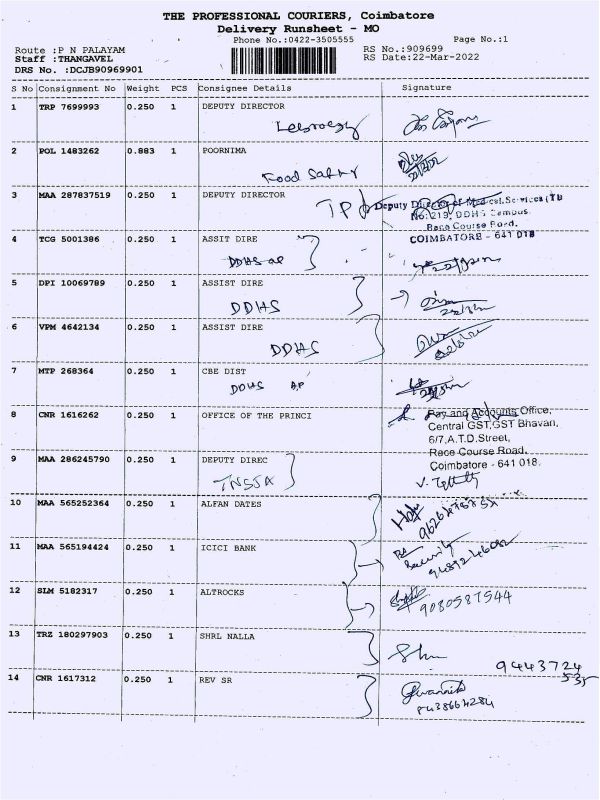 THE PROFESSIONAL COURIERS, Coimbatore
Delivery Runsheet - MO
Phone No.:0422-3505555
Page No.:1
Route :P N PALAYAM
RS No.:909699
Staff :THANGAVEL
RS Date:22-Mar-2022
DRS No. :DCJB90969901
S No Consignment No Weight PCS Consignee Details Signature
1 TRP 7699993 0.250 1 DEPUTY DIRECTOR
2 POL 1483262 0.883 1 POORNIMA
Food Safty
3 MAA 287837519 0.250 1 DEPUTY DIRECTOR
Deputy Director of Medical Services (TB
No:219, DDHS Campus
Race Course Road.
COIMBATORE - 641 018
4 TCG 5001386 0.250 1 ASSIT DIRE
DDHS
5 DPI 10069789 0.250 1 ASSIST DIRE
DDHS
6 VPM 4642134 0.250 1 ASSIST DIRE
DDHS
7 MTP 268364 0.250 1 CBE DIST
DDHS
8 CNR 1616262 0.250 1 OFFICE OF THE PRINCI
Pay and Accounts Office,
Central GST,GST Bhavan,
6/7,A.T.D.Street,
Race Course Road,
Coimbatore - 641 018.
9 MAA 286245790 0.250 1 DEPUTY DIREC
TNSSA
10 MAA 565252364 0.250 1 ALFAN DATES
11 MAA 565194424 0.250 1 ICICI BANK
Security
12 SLM 5182317 0.250 1 ALTROCKS
9080587544
13 TRZ 180297903 0.250 1 SHRL NALLA
9443724
535
14 CNR 1617312 0.250 1 REV SR